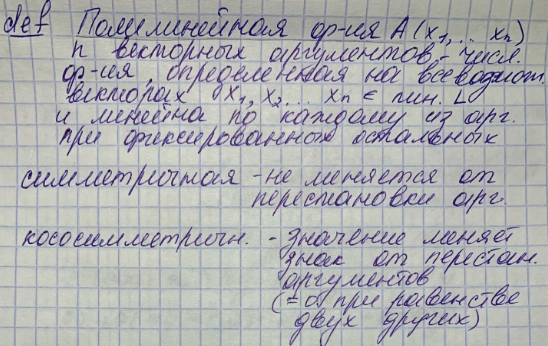 def Полилинейная ф-ия A(x₁, ... xₙ)
n векторных аргументов - числ.
ф-ия, определенная на всевозмож.
векторах x₁, x₂ ... xₙ ∈ лин. L
и линейна по каждому из арг.
при фиксированных остальных
симметричная - не меняется от
перестановки арг.
кососимметричн. - значение меняет
знак от перестан.
аргументов
(= 0 при равенстве
двух других)